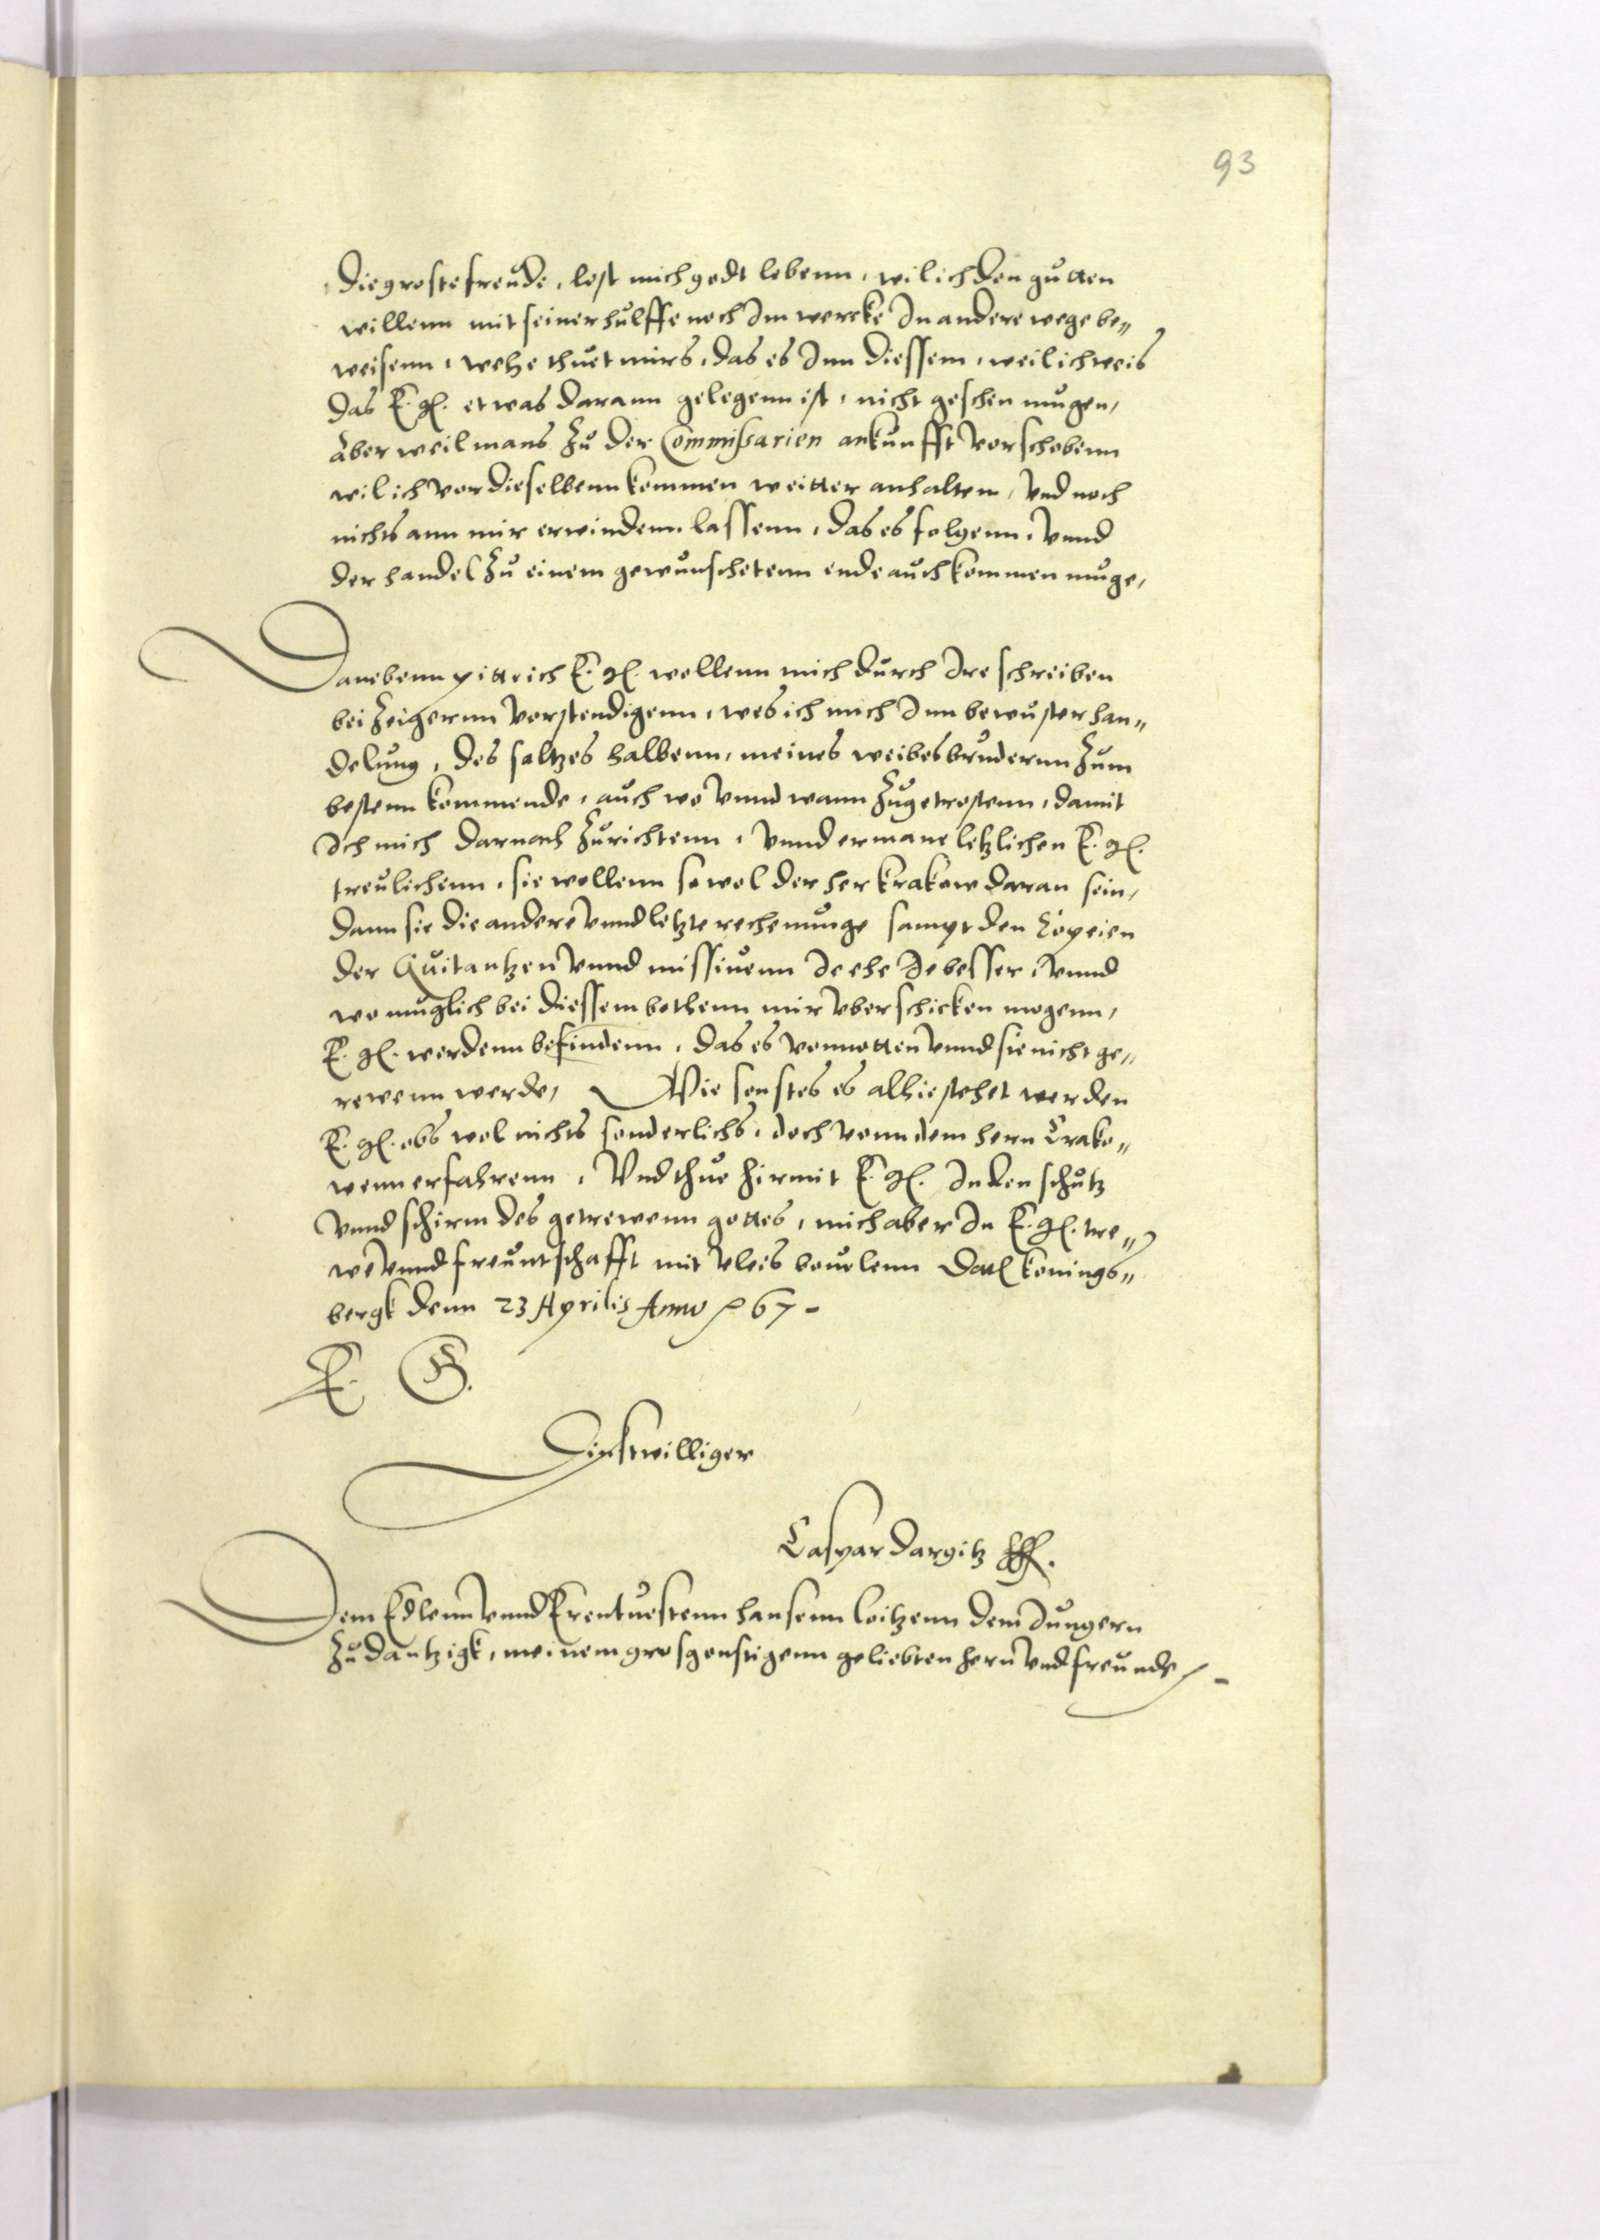 93
die groste freude, lest mich godt lebenn, wil ich den gutten
willenn mit seiner hulffe noch Im wercke In andere wege be„
weisenn, wehe thuet mirs, das es Inn diessem, weil ich weis
das E. G. etwas darann gelegenn ist, nicht geschen mugen,
Aber weil mans zu der Commissarien ankunfft vorschobenn
wil ich vor dieselbenn kommen weitter anhalten, vnd noch
nichts ann mir erwindenn lassenn, das es folgenn, vnnd
der handel zu einem gewunschetenn ende auch kommen muge,
Danebenn pitt ich E. G. wollenn mich durch Ire schreiben
bei zeigernn vorstendigenn, wes ich mich Inn bewuster han„
delung, des saltzes halbenn, meines weibes brudernn zum
bestenn kommende, auch wo vnnd wann zugetrostenn, damit
Ich mich darnach zurichtenn, vnnd ermane letzlichen E. G.
treulichenn, sie wollenn so wol der her krakow daran sein,
dann sie die andere vnnd letzte rechenunge sampt den Copeien
der Quitantzen vnnd missiuenn Je ehe Je besser, vnnd
wo muglich bei diessem bothenn mir vberschicken mogenn,
E. G. werdenn befindenn, das es vonnotten vnnd sie nicht ge„
rewenn werde, Wie sonstes es alhie stehet werden
E. G. obs wol nichts sonderlichs, doch vonn dem hern Crako„
wenn erfahrenn, Vnd thue hirmit E. G. In den schutz
vnnd schirm des getrewenn gottes, mich aber In E. G. tre„
we vnnd freuntschafft mit vleis beuelenn Datl konings„
bergk denn 23 Aprilis Anno 67 -
E. G.
Dinstwilliger
Caspar Dargitz
Dem Edlenn vnnd Erentuestenn hansenn Loitzenn dem Jungern
zu dantzigk, meinem grosgonstigenn geliebten hern vnd freunde -